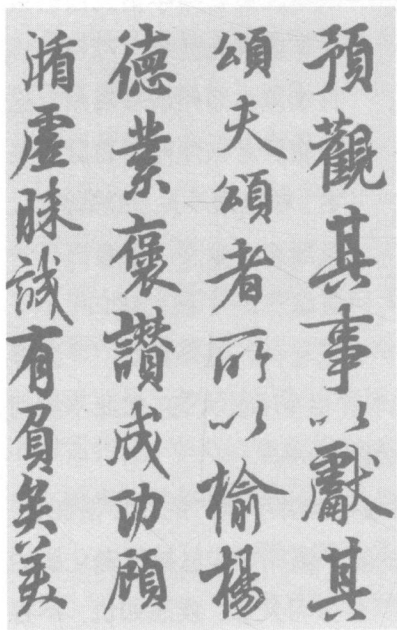 預觀其事以獻其
頌夫頌者所以榆楊
德業褒讚成功顧
循虛昧誠有負矣美